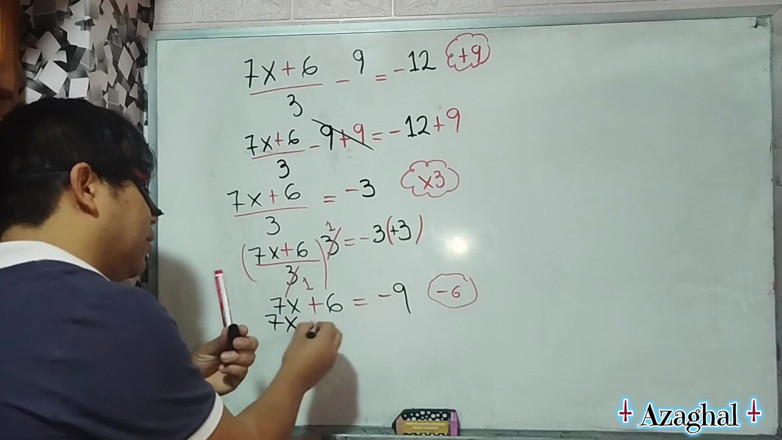 (7x+6)/3 - 9 = -12 +9
(7x+6)/3 - 9 + 9 = -12 + 9
(7x+6)/3 = -3 x3
((7x+6)/3) 3 1 = -3(+3)
1
7x + 6 = -9 -6
7x
‡ Azaghal ‡